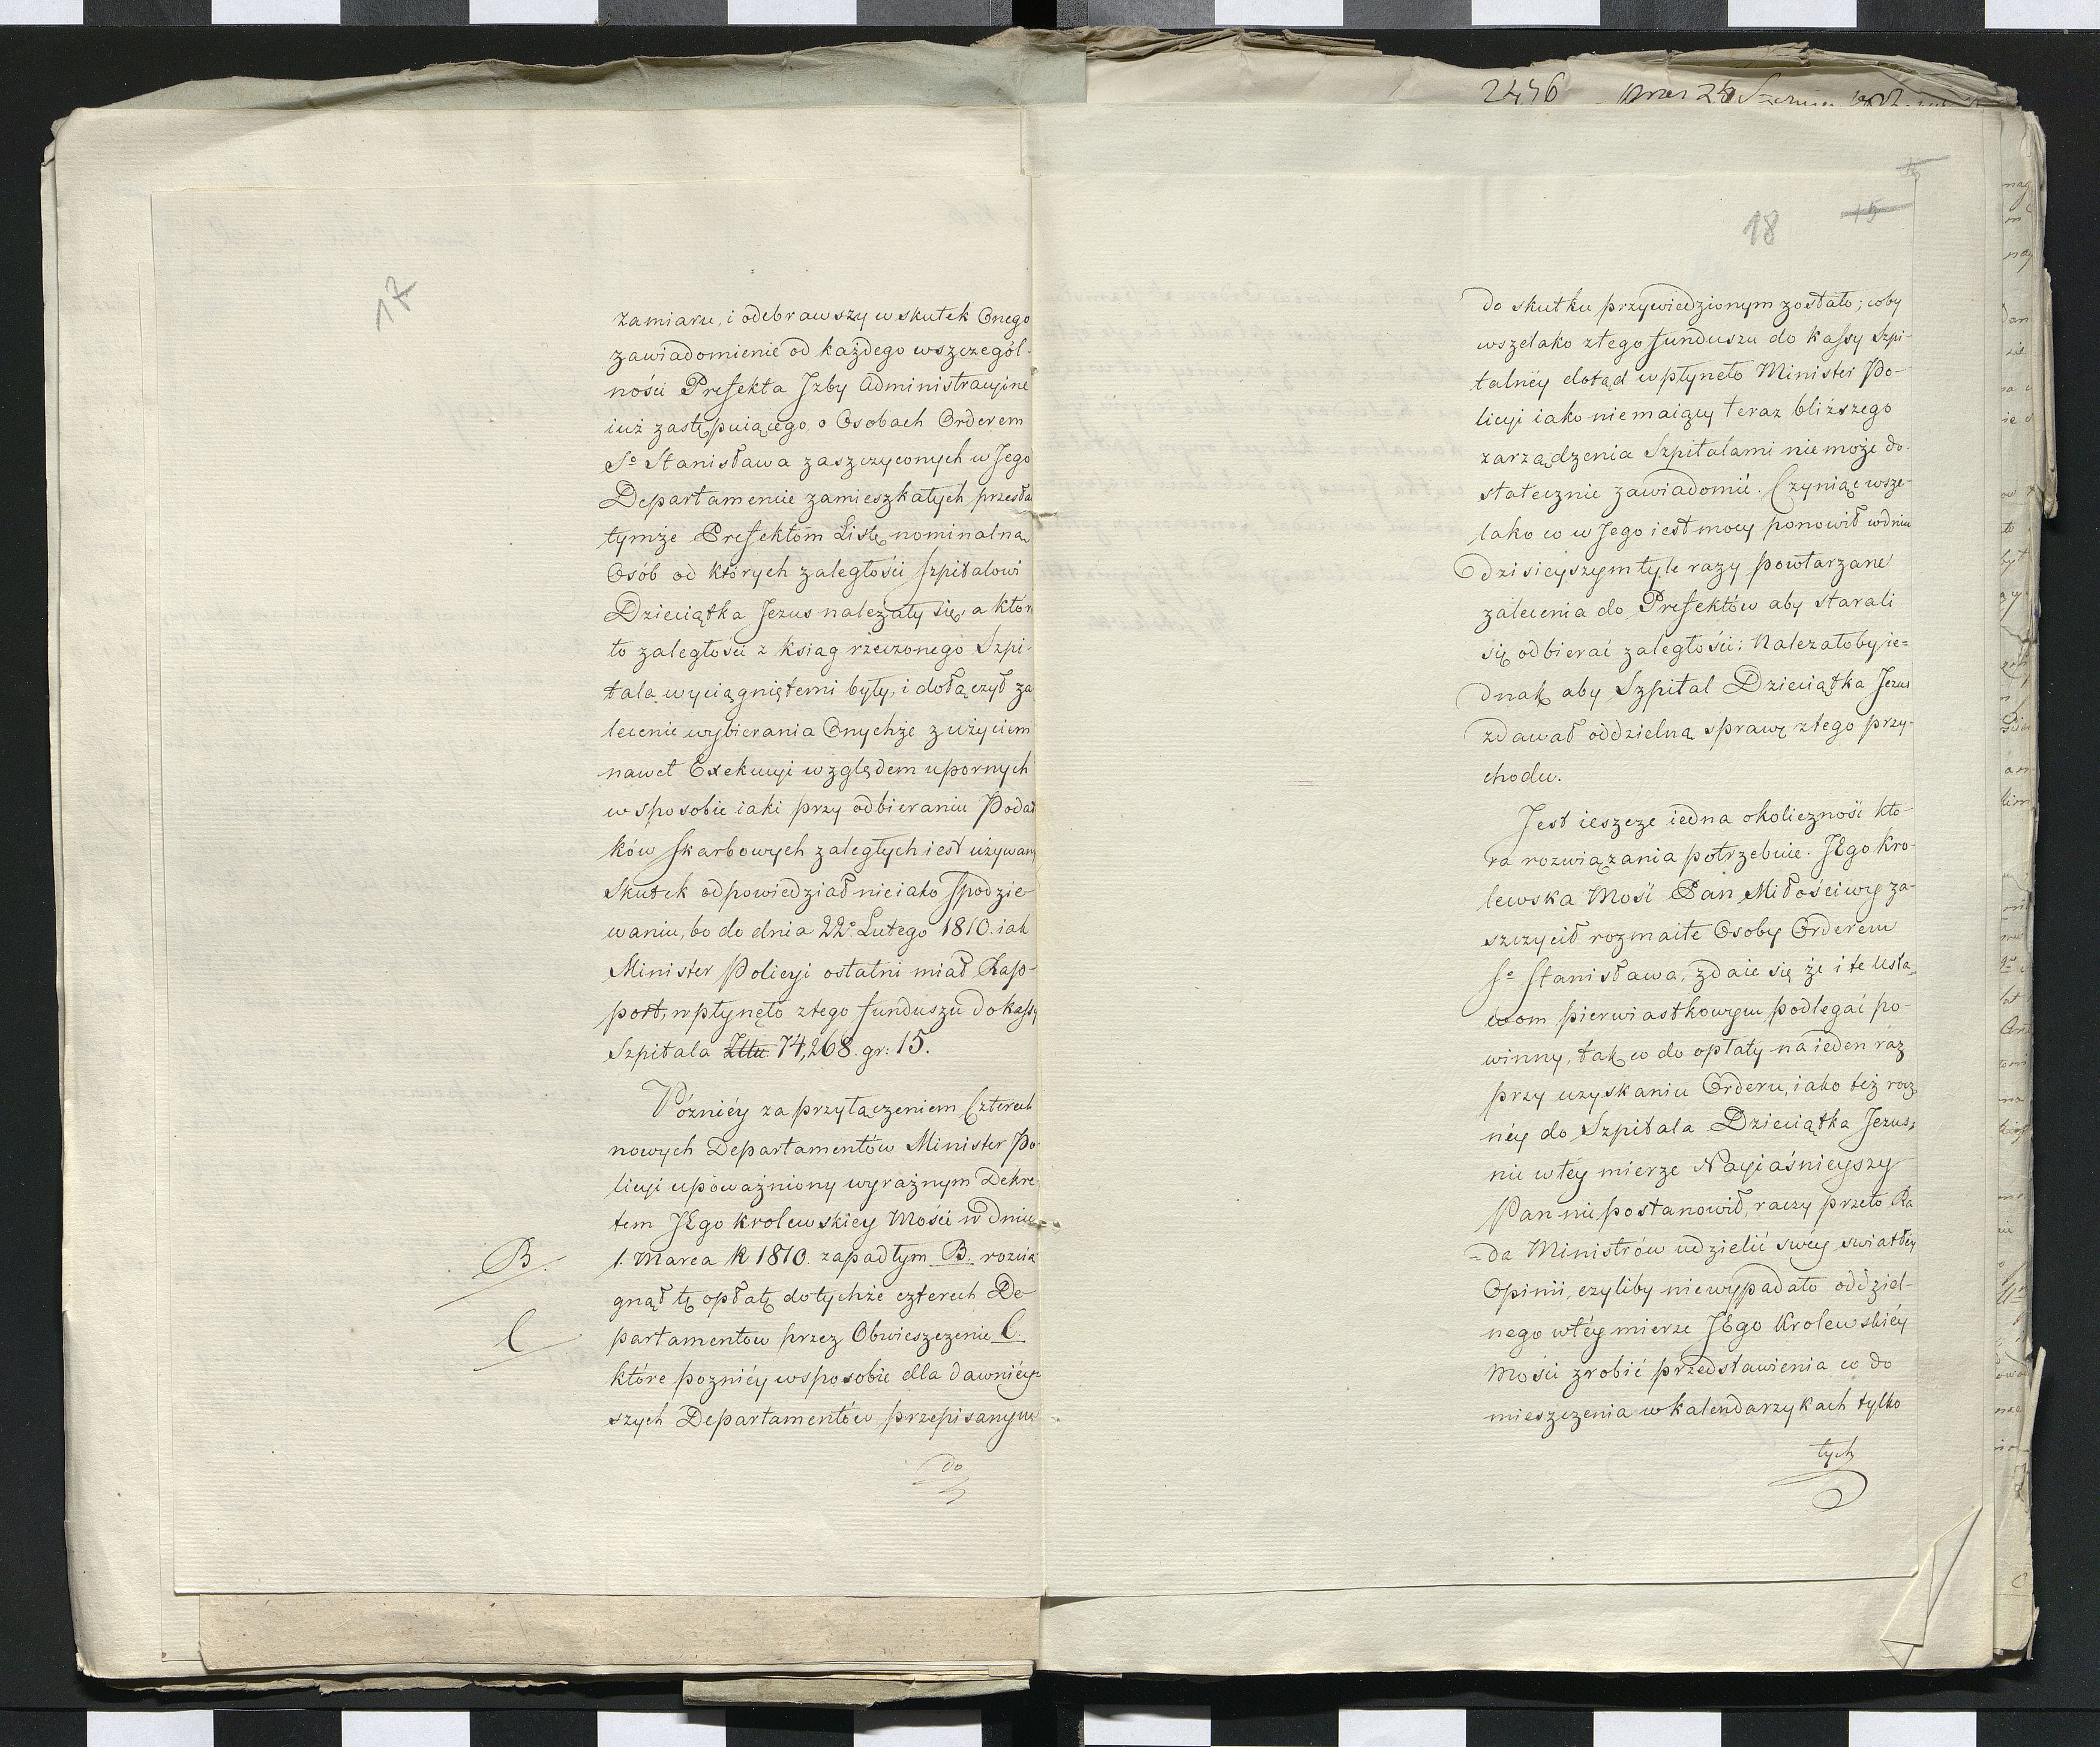 17
zamiaru, i odebrawszy w skutek Onego
zawiadomienie od każdego wszczegól-
ności Prefekta Jzby Administracyine
iuż zastępuiącego, o Osobach Orderem
Sº Stanisława zaszczyconych w Jego
Departamencie zamieszkałych przesła
tymże Prefektom Listę nominalną
Osób od których zaległości Szpitalowi
Dzieciątka Jezus należały się, a któr
to zaległości z ksiąg rzeczonego Szpi-
tala wyciągniętemi były, i dołączył za
lecenie wybierania Onychże z użyciem
nawet Exekucyi względem upornych
w sposobie iaki przy odbieraniu Podat
ków Skarbowych zaległych iest używany
Skutek odpowiedział nieiako Spodzie
waniu, bo do dnia 22º Lutego 1810. iak
Minister Policyi ostatni miał Rap-
port, wpłynęło ztego funduszu do kassy
Szpitala Złtu. 74,268. gr: 15.
Pózniéy za przyłączeniem Czterech
nowych Departamentów Minister Po
licyi upoważniony wyraznym Dekre
tem JEgo krolewskiey Mości w dniu
B. 1. Marca R 1810. zapadłym B. rozcią
gnął tę opłatę do tychże czterech De
C partamentow przez Obwieszczenie C.
które pozniéy wsposobie dla dawniéy-
szych Departamentów przepisanym
do
2456
18
15
do skutku przywiedzionym zostało; coby
wszelako ztego funduszu do kassy Szpi-
talnéy dotąd wpłyneło Minister Po-
licyi iako niemaiący teraz bliższego
zarządzenia Szpitalami niemoże do-
statecznie zawiadomić. Czyniąc wsze-
lako co w Jego iest mocy ponowił wdniu
dzisieyszym tyle razy powtarzane
zalecenia do Prefektów aby starali
się odbierać zaległości: Nalezałoby ie=
dnak aby Szpital Dzieciątka Jezus
zdawał oddzielną sprawę ztego przy-
chodu.
Jest ieszcze iedna okoliczność kto-
ra rozwiązania potrzebuie. JEgo kro-
lewska Mość Pan Miłościwy za-
szczycił rozmaite Osoby Orderem
Sº Stanisława, zdaie się że i te Usta,
wom pierwiastkowym podlegać po-
winny, tak co do opłaty na ieden raz
przy uzyskaniu Orderu, iako też rocz
néy do Szpitala Dzieciątka Jezus,
nic w tey mierze Nayiaśnieyszy
Pan nie postanowił, raczy przeto Ra
-da Ministrów udzielić swéy swiatłéy
Opinii, czyliby niewypadało oddziel-
nego wtéy mierze JEgo Krolewskiéy
Mości zrobić przedstawienia co do
mieszczenia w kalendarzykach tylko
tych